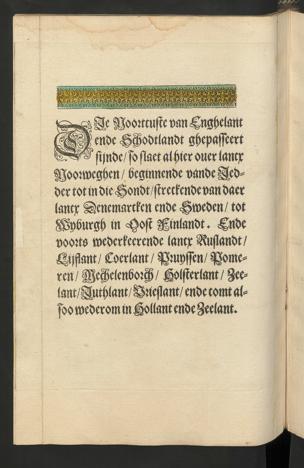 DIe Noortcuste van Enghelant
ende Schodtlandt ghepasseert
sijnde / so slaet al hier over lancx
Noorweghen / beginnende vande Jed-
der tot in die Sondt / streckende van daer
lancx Denemarcken ende Sweden / tot
Wyburgh in Oost Finlandt. Ende
voorts wederkeerende lancx Ruslandt /
Lijflant / Coerlant / Pruyssen / Pome-
ren / Mechelenborch / Holsterlant / Zee-
lant / Juthlant / Vrieslant / ende comt al-
soo wederom in Hollant ende Zeelant.